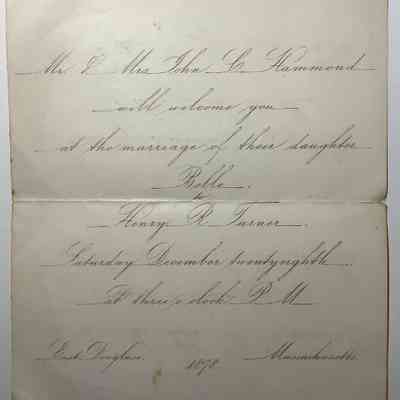 Mr. & Mrs John C. Hammond
will welcome you
at the marriage of their daughter
Belle.
to
Henry R. Turner.
Saturday December twentyeighth.
at three o clock P. M.
East Douglass. 1878 Massachusetts.